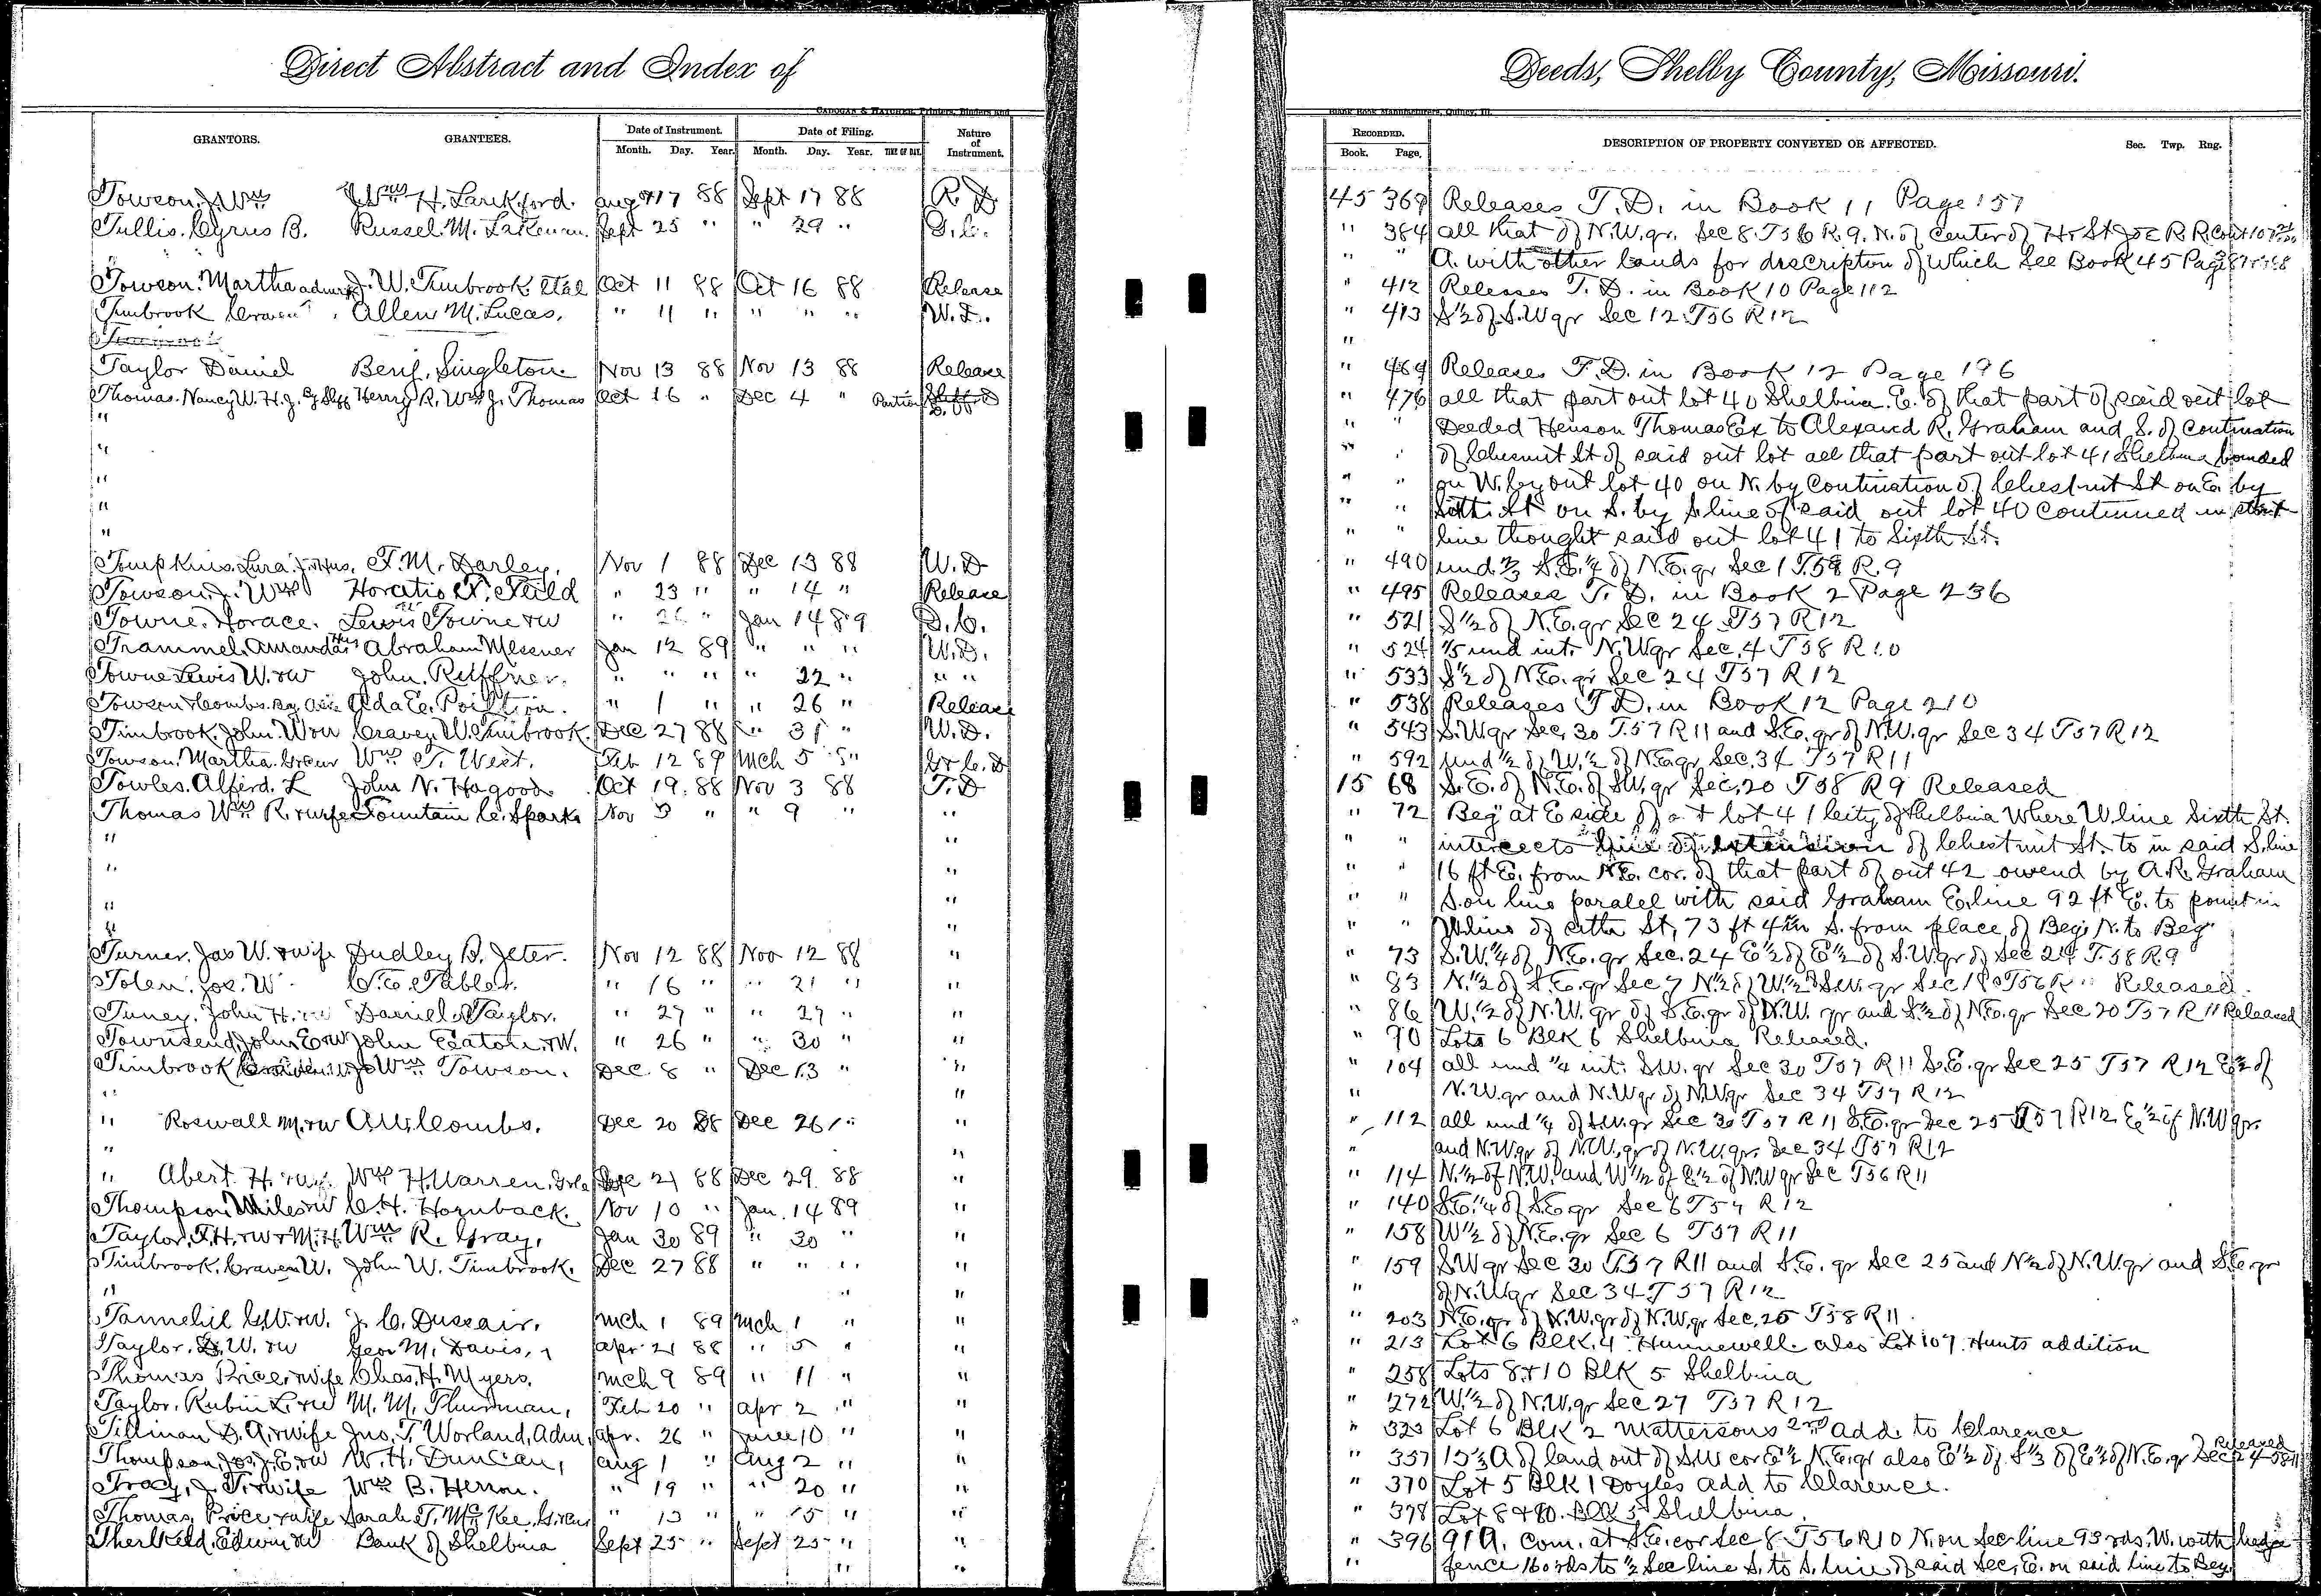 Direct Abstract and Index of Deeds, Shelby County, Missouri.
CADOGAN & HATCHER, Printers, Binders and Blank Book Manufacturers, Quincy, Ill.
GRANTORS. GRANTEES. Date of Instrument. Date of Filing. Nature of Instrument. RECORDED. DESCRIPTION OF PROPERTY CONVEYED OR AFFECTED. Sec. Twp. Rng.
Month. Day. Year. Month. Day. Year. TIME OF DAY. Book. Page.
Towson, J. Wm Wm H. Lankford. Aug 17 88 Sept 17 88 R. D 45 369 Releases T.D. in Book 11 Page 157
Tullis. Cyrus B. Russel. M. Sept 25 " " 29 " Q.C. " 384 all that of N.W.qr. Sec 8. T56 R.9. N. of Center of H. & St Joe R.R. Cont 107
" " " A. with other lands for descripton of which See Book 45 Page
Towson. Martha J. W. Timbrook. etal Oct 11 88 Oct 16 88 Release " 412 Releases T.D. in Book 10 Page 112
Timbrook Craven Allen M. Lucas. " 11 " " " " W.D. " 413 S½ of S.W qr Sec 12 T56 R12
"
Taylor Daniel Benj. Singleton Nov 13 88 Nov 13 88 Release " 464 Releases T.D. in Book 12 Page 196
Thomas. Nancy W. H. J. By Shff Henry R. Wm J. Thomas Oct 16 " Dec 4 " Partion " 476 all that part out lot 40 Shelbina. E. of that part of said out lot
" " " Deeded Henson Thomas Ex to Alexand R. Graham and S. of Contination
" " " of Chesnut St of said out lot all that part out lot 41 Shelbina bounded
" " " on W. by out lot 40 on N. by Contination of Chestnut St on E. by
" " " Sixth St on S. by S line of said out lot 40 Continued in strat
" " " line thought said out lot 41 to Sixth St.
Tompkins. Lura. J. & Hus. F. M. Darley. Nov 1 88 Dec 13 88 W.D " 490 und ⅔ S.E.¼ of N.E.qr Sec 1 T.58 R.9
Towson. J. Wm Horatio F. Feild " 23 " " 14 " Release " 495 Releases T.D. in Book 2 Page 236
Towne. Horace. Lewis Towne &W " 26 " Jan 14 89 Q.C. " 521 S½ of N.E.qr Sec 24 T57 R12
Trammel. Amanda & Hus Abraham Messner Jan 12 89 " " " W.D. " 524 ⅕ und int. N.W.qr Sec. 4 T58 R10
Towne Lewis W. &W John. Ruffner. " " " " 22 " " " " 533 S½ of N.E.qr Sec 24 T57 R12
Towson & Combs. Ada E. " 1 " " 26 " Release " 538 Releases T.D. in Book 12 Page 210
Timbrook. John. W &W Craven W. Timbrook. Dec 27 88 " 31 " W.D. " 543 S.W.qr Sec. 30 T.57 R11 and S.E.qr of N.W.qr Sec 34 T57 R12
Towson. Martha. Wm T. West. Feb 12 89 Mch 5 " " 592 und ½ of W.½ of N.E.qr Sec. 34 T57 R11
Towles. Alferd. L John N. Hagood. Oct 19. 88 Nov 3 88 T.D 15 68 S.E. of N.E. of SW.qr Sec. 20 T58 R9 Released
Thomas Wm R. & wife Fountain C. Sparks Nov 3 " " 9 " " " 72 Beg at E side of out lot 41 City of Shelbina Where W line Sixth St.
" " " " intersects line of extension of Chestnut St. to in said S. line
" " " " 16 ft E. from N.E. cor. of that part of out 42 owend by A.R. Graham
" " " " S. on line paralel with said Graham E. line 92 ft E. to point in
" " " " W line of St, 73 ft 4in S. from place of Beg. N. to Beg
Turner. Jas W. & wife Dudley B. Jeter. Nov 12 88 Nov 12 88 " " 73 S.W.¼ of N.E.qr Sec. 24 E½ of E½ of S.W.qr of Sec 24 T.58 R.9
Tolen. Jos. W. C. E. Tabler. " 16 " " 21 " " " 83 N.½ of S.E.qr Sec 7 N½ of W.½ of S.W.qr Sec 18 T56 R " Released.
Tuney. John H. &W Daniel Taylor. " 27 " " 27 " " " 86 W.½ of N.W.qr of S.E.qr of N.W. qr and S½ of N.E.qr Sec 20 T57 R11 Released
Townsend, John E &W John Eaton &W. " 26 " " 30 " " " 90 Lots 6 Blk 6 Shelbina Released.
Timbrook Wm Towson. Dec. 8 " Dec 13 " " " 104 all und ¼ int. S.W.qr Sec 30 T57 R11 S.E.qr Sec 25 T57 R12 E½ of
" " " N.W.qr and N.W qr of N.W.qr Sec 34 T57 R12
" Roswall M. &W A.W. Combs. Dec 20 88 Dec 26 " " " 112 all und ¼ of S.W.qr Sec 30 T57 R11 S.E.qr Sec 25 T57 R12 E½ of N.W qr.
" " " and N.W.qr of N.W.qr of N.W.qr. Sec 34 T57 R12
" Abert. H. & Wf. Wm H. Warren. Dec 21 88 Dec 29. 88 " " 114 N.½ of N.W. and W½ of E½ of N.W qr Sec T56 R11
Thompson Miles &W C. H. Hornback. Nov 10 " Jan. 14 89 " " 140 S.E.¼ of S.E.qr Sec 6 T57 R12
Taylor. T.H. &W & M.H. Wm R. Gray. Jan 30 89 " 30 " " " 158 W½ of N.E.qr Sec 6 T57 R11
Timbrook. Craven W. John W. Timbrook. Dec 27 88 " " " " " 159 S.W qr Sec 30 T.57 R11 and S.E. qr Sec 25 and N½ of N.W.qr and S.E.qr
" " " " of N.W.qr Sec 34 T57 R12
Tannehil G.W. &W. J. C. Dussair. Mch 1 89 Mch 1 " " " 203 N.E.qr of N.W.qr of N.W.qr Sec. 25 T58 R11
Taylor. W. &W Geo M. Davis. Apr. 21 88 " 5 " " " 213 Lot 6 BLK. 4 Hunnewell. also Lot 107 Hunts addition
Thomas Price & wife Chas. H. Myers. Mch 9 89 " 11 " " " 258 Lots 8 & 10 BLK 5 Shelbina
Taylor. Rubin L. &W M. M. Thurman. Feb 20 " Apr 2 " " " 272 W.½ of N.W.qr Sec 27 T57 R12
Tillman D. A. & wife Jno. T. Worland, Adm. Apr. 26 " June 10 " " " 323 Lot 6 BLK 2 Mattersons 2nd add. to Clarence
Thompson, Jos. J. E. &W W. H. Duncan, Aug 1 " Aug 2 " " " 357 15⅓ A of land out of S.W cor E½ N.E.qr also E½ of S⅓ of E½ of N.E.qr Released
Tracy, J. T. & wife Wm B. Herron. " 19 " " 20 " " " 370 Lot 5 BLK 1 Doyles add to Clarence.
Thomas, Price & wife Sarah T. McKee " 13 " " 15 " " " 378 Lot 8 & 10. BLK 5 Shelbina.
Therlkeld. Edwin &W Bank of Shelbina Sept 25 " Sept 25 " " " 396 91 A. Com. at S.E. cor Sec 8 T56 R10 N. on Sec line 93 rds, W. with hedge
" " " fence 160 rds to ½ Sec line S. to S. line of said Sec, E. on said line to Beg.